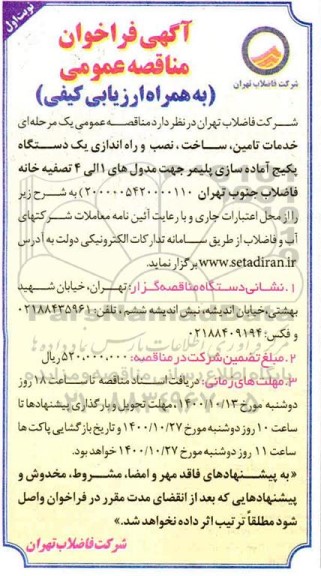 نوبت اول
آگهی فراخوان
مناقصه عمومی
(به همراه ارزیابی کیفی)
شرکت فاضلاب تهران
شرکت فاضلاب تهران در نظر دارد مناقصه عمومی یک مرحله‌ای
خدمات تامین، ساخت، نصب و راه اندازی یک دستگاه
پکیج آماده سازی پلیمر جهت مدول های ۱ الی ۴ تصفیه خانه
فاضلاب جنوب تهران (۲۰۰۰۰۰۵۴۲۰۰۰۰۱۱۰) به شرح زیر
را از محل اعتبارات جاری و با رعایت آئین نامه معاملات شرکتهای
آب و فاضلاب از طریق سامانه تدارکات الکترونیکی دولت به آدرس
www.setadiran.ir برگزار نماید.
۱. نشانی دستگاه مناقصه گزار: تهران، خیابان شهید
بهشتی، خیابان اندیشه، نبش اندیشه ششم، تلفن: ۰۲۱۸۸۴۳۵۹۶۱
و فکس: ۰۲۱۸۸۴۰۹۱۹۴
۲. مبلغ تضمین شرکت در مناقصه: ۵۲۰.۰۰۰.۰۰۰ ریال
۳. مهلت های زمانی: دریافت اسناد مناقصه تا ساعت ۱۸ روز
دوشنبه مورخ ۱۴۰۰/۱۰/۱۳. مهلت تحویل و بارگذاری پیشنهادها تا
ساعت ۱۰ روز دوشنبه مورخ ۱۴۰۰/۱۰/۲۷ و تاریخ بازگشایی پاکت ها
ساعت ۱۱ روز دوشنبه مورخ ۱۴۰۰/۱۰/۲۷ خواهد بود.
«به پیشنهادهای فاقد مهر و امضا، مشروط، مخدوش و
پیشنهادهایی که بعد از انقضای مدت مقرر در فراخوان واصل
شود مطلقاً ترتیب اثر داده نخواهد شد.»
شرکت فاضلاب تهران